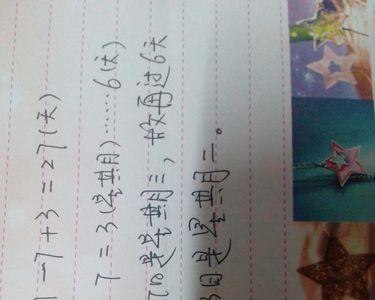 1-7+3=27(天)
7=3(星期)……6(天)
7日是星期三，故再过6天
3日是星期二。